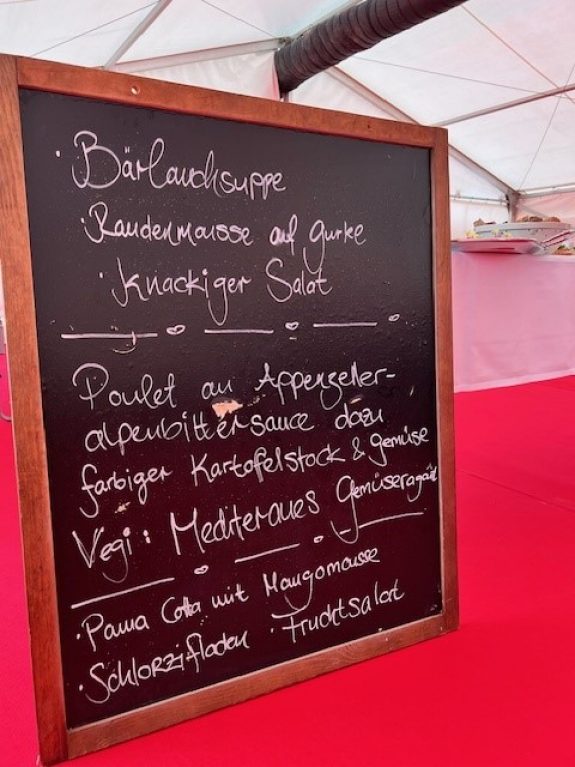 · Bärlauchsuppe
· Randenmousse auf Gurke
· Knackiger Salat
Poulet an Appenzeller-
alpenbittersauce dazu
farbiger Kartofelstock & Gemüse
Vegi: Mediteranes Gemüseragôut
· Pana Cotta mit Mangomousse
· Schlorzifladen · Fruchtsalat